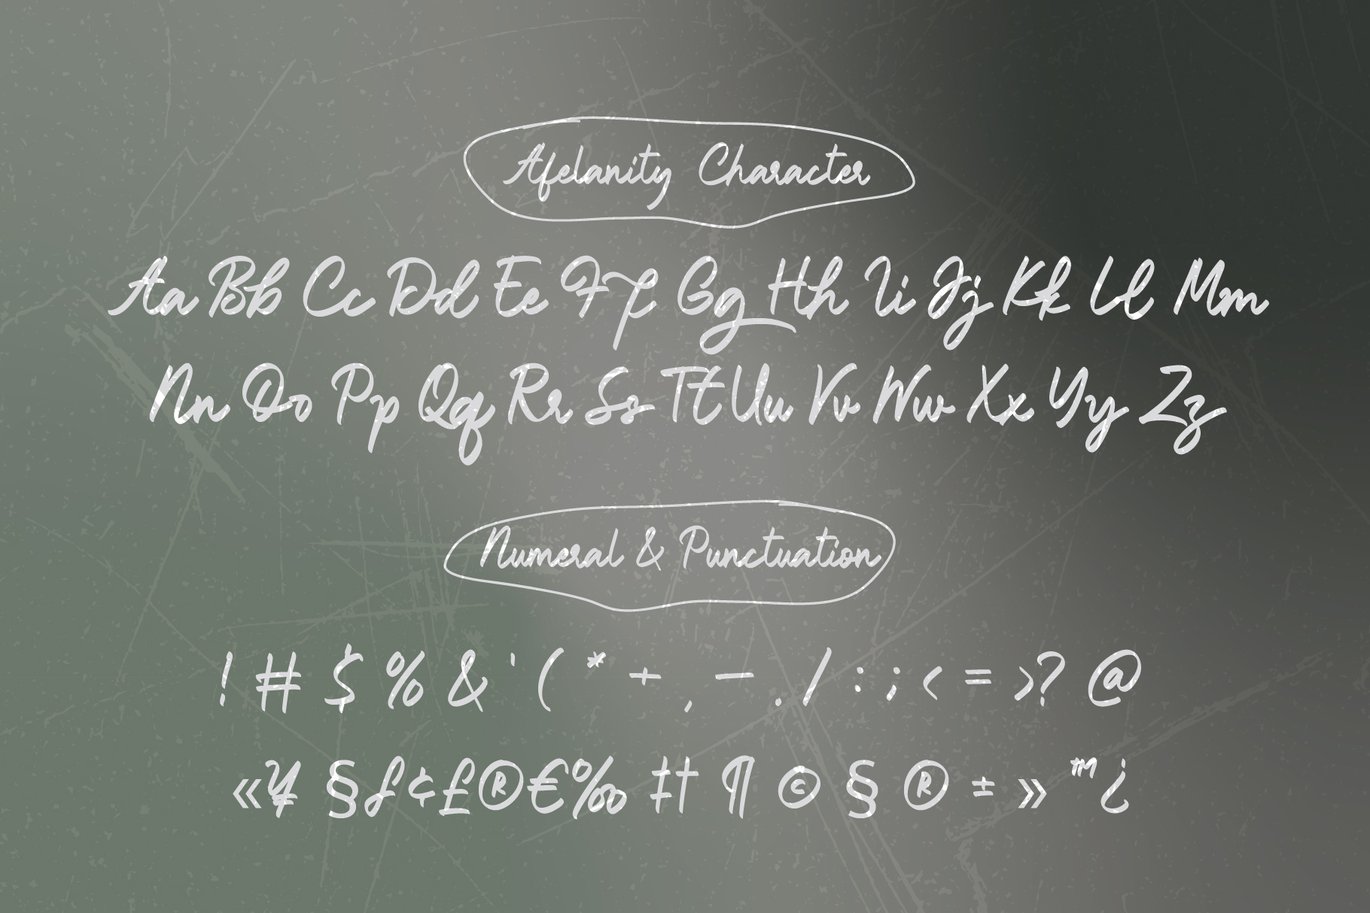 Afelanity Character
Aa Bb Cc Dd Ee Ff Gg Hh Ii Jj Kk Ll Mm
Nn Oo Pp Qq Rr Ss Tt Uu Vv Ww Xx Yy Zz
Numeral & Punctuation
! # $ % & ' ( * + , - . / : ; < = > ? @
« ¥ § ƒ ¢ £ ® € ‰ ‡ ¶ © § ® ± » ™ ¿